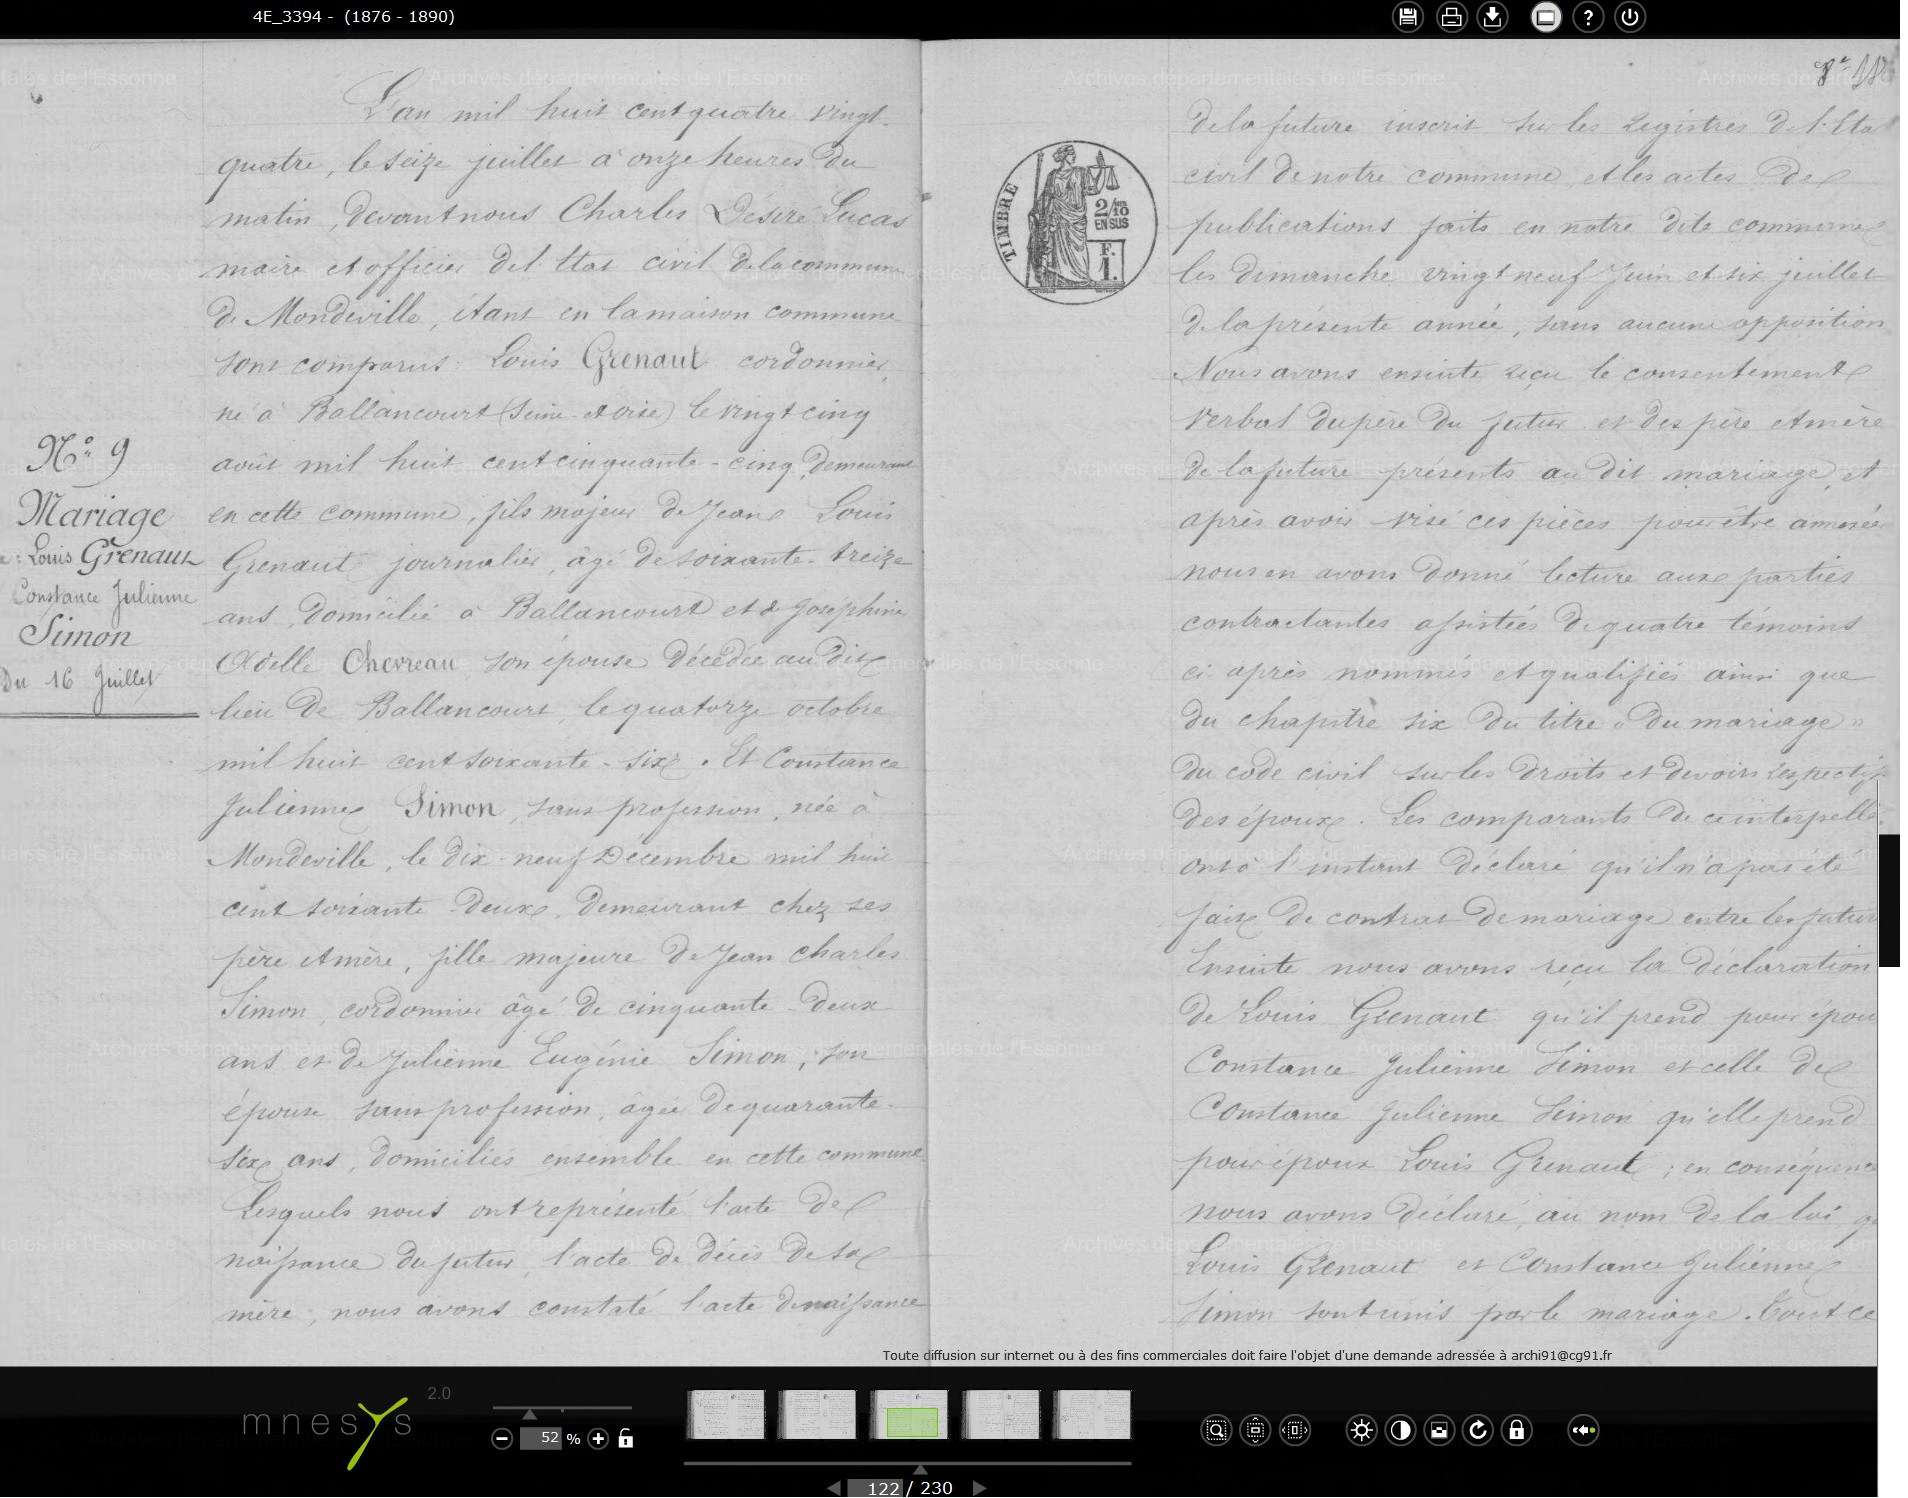 4E_3394 - (1876 - 1890)
N° 9
Mariage
Louis Grenaut
Constance Julienne
Simon
Du 16 Juillet
L'an mil huit cent quatre vingt-
quatre, le seize juillet à onze heures du
matin, devant nous Charles Désiré Lucas
maire et officier de l'Etat civil de la commune
de Mondeville, étant en la maison commune
sont comparus : Louis Grenaut cordonnier,
né à Ballancourt (Seine-et-oise) le vingt cinq
août mil huit cent cinquante-cinq, demeurant
en cette commune, fils majeur de Jean Louis
Grenaut journalier, âgé de soixante-treize
ans, domicilié à Ballancourt et de Joséphine
Adelle Chevreau son épouse décédée au dit
lieu de Ballancourt, le quatorze octobre
mil huit cent soixante-six. Et Constance
Julienne Simon, sans profession, née à
Mondeville, le dix-neuf Décembre mil huit
cent soixante-deux, demeurant chez ses
père et mère, fille majeure de Jean Charles
Simon, cordonnier âgé de cinquante-deux
ans et de Julienne Eugénie Simon, son
épouse sans profession, âgée de quarante-
six ans, domiciliés ensemble en cette commune
Lesquels nous ont représenté l'acte de
naissance du futur, l'acte de décès de sa
mère ; nous avons constaté l'acte de naissance
TIMBRE
2/10 EN SUS
F. 1.
de la future inscrit sur les registres de l'Eta
civil de notre commune, et les actes de
publications faits en notre dite commune
les dimanche vingt neuf Juin et six juillet
de la présente année, sans aucune opposition
Nous avons ensuite reçu le consentement
verbal du père du futur et des père et mère
de la future présents au dit mariage, et
après avoir visé ces pièces pour être annexée
nous en avons donné lecture aux parties
contractantes assistées de quatre témoins
ci-après nommés et qualifiés ainsi que
du chapitre six du titre « du mariage »
du code civil sur les droits et devoirs respectifs
des époux. Les comparants de ce interpellé
ont à l'instant déclaré qu'il n'a pas été
fait de contrat de mariage entre les futur
Ensuite nous avons reçu la déclaration
de Louis Grenaut qu'il prend pour épou
Constance Julienne Simon et celle de
Constance Julienne Simon qu'elle prend
pour époux Louis Grenaut ; en conséquence
nous avons déclaré au nom de la loi q
Louis Grenaut et Constance Julienne
Simon sont unis par le mariage. Tout ce
Archives départementales de l'Essonne
Toute diffusion sur internet ou à des fins commerciales doit faire l'objet d'une demande adressée à archi91@cg91.fr
mnesys 2.0
52 %
122 / 230